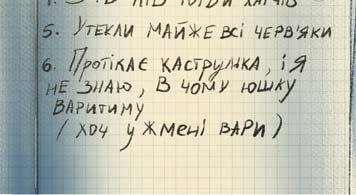 5. УТЕКЛИ МАЙЖЕ ВСІ ЧЕРВ'ЯКИ
6. ПРОТІКАЄ КАСТРУЛКА, І Я
НЕ ЗНАЮ, В ЧОМУ ЮШКУ
ВАРИТИМУ
(ХОЧ У ЖМЕНІ ВАРИ)